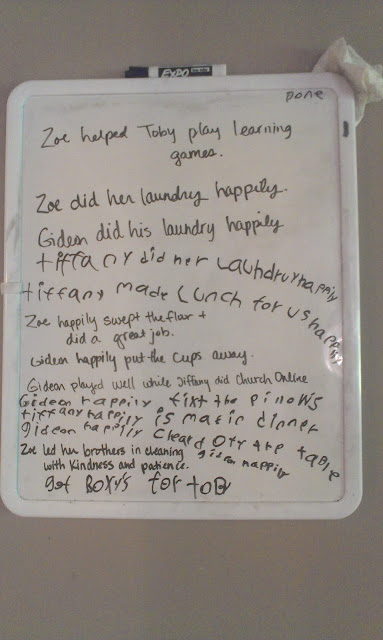 EXPO
Done
Zoe helped Toby play learning
games.
Zoe did her laundry happily.
Gideon did his laundry happily
tiffany did her Laundruyhappily
tiffany made Lunch for us happily
Zoe happily swept the floor +
did a great job.
Gideon happily put the cups away.
Gideon played well while Tiffany did Church Online
Gideon happily fixt the pinows
tiffany happily is makin dinner
gideon happily cleard Off the table
Zoe led her brothers in cleaning
with kindness and patience.
gideon happily
got Boxys for tob